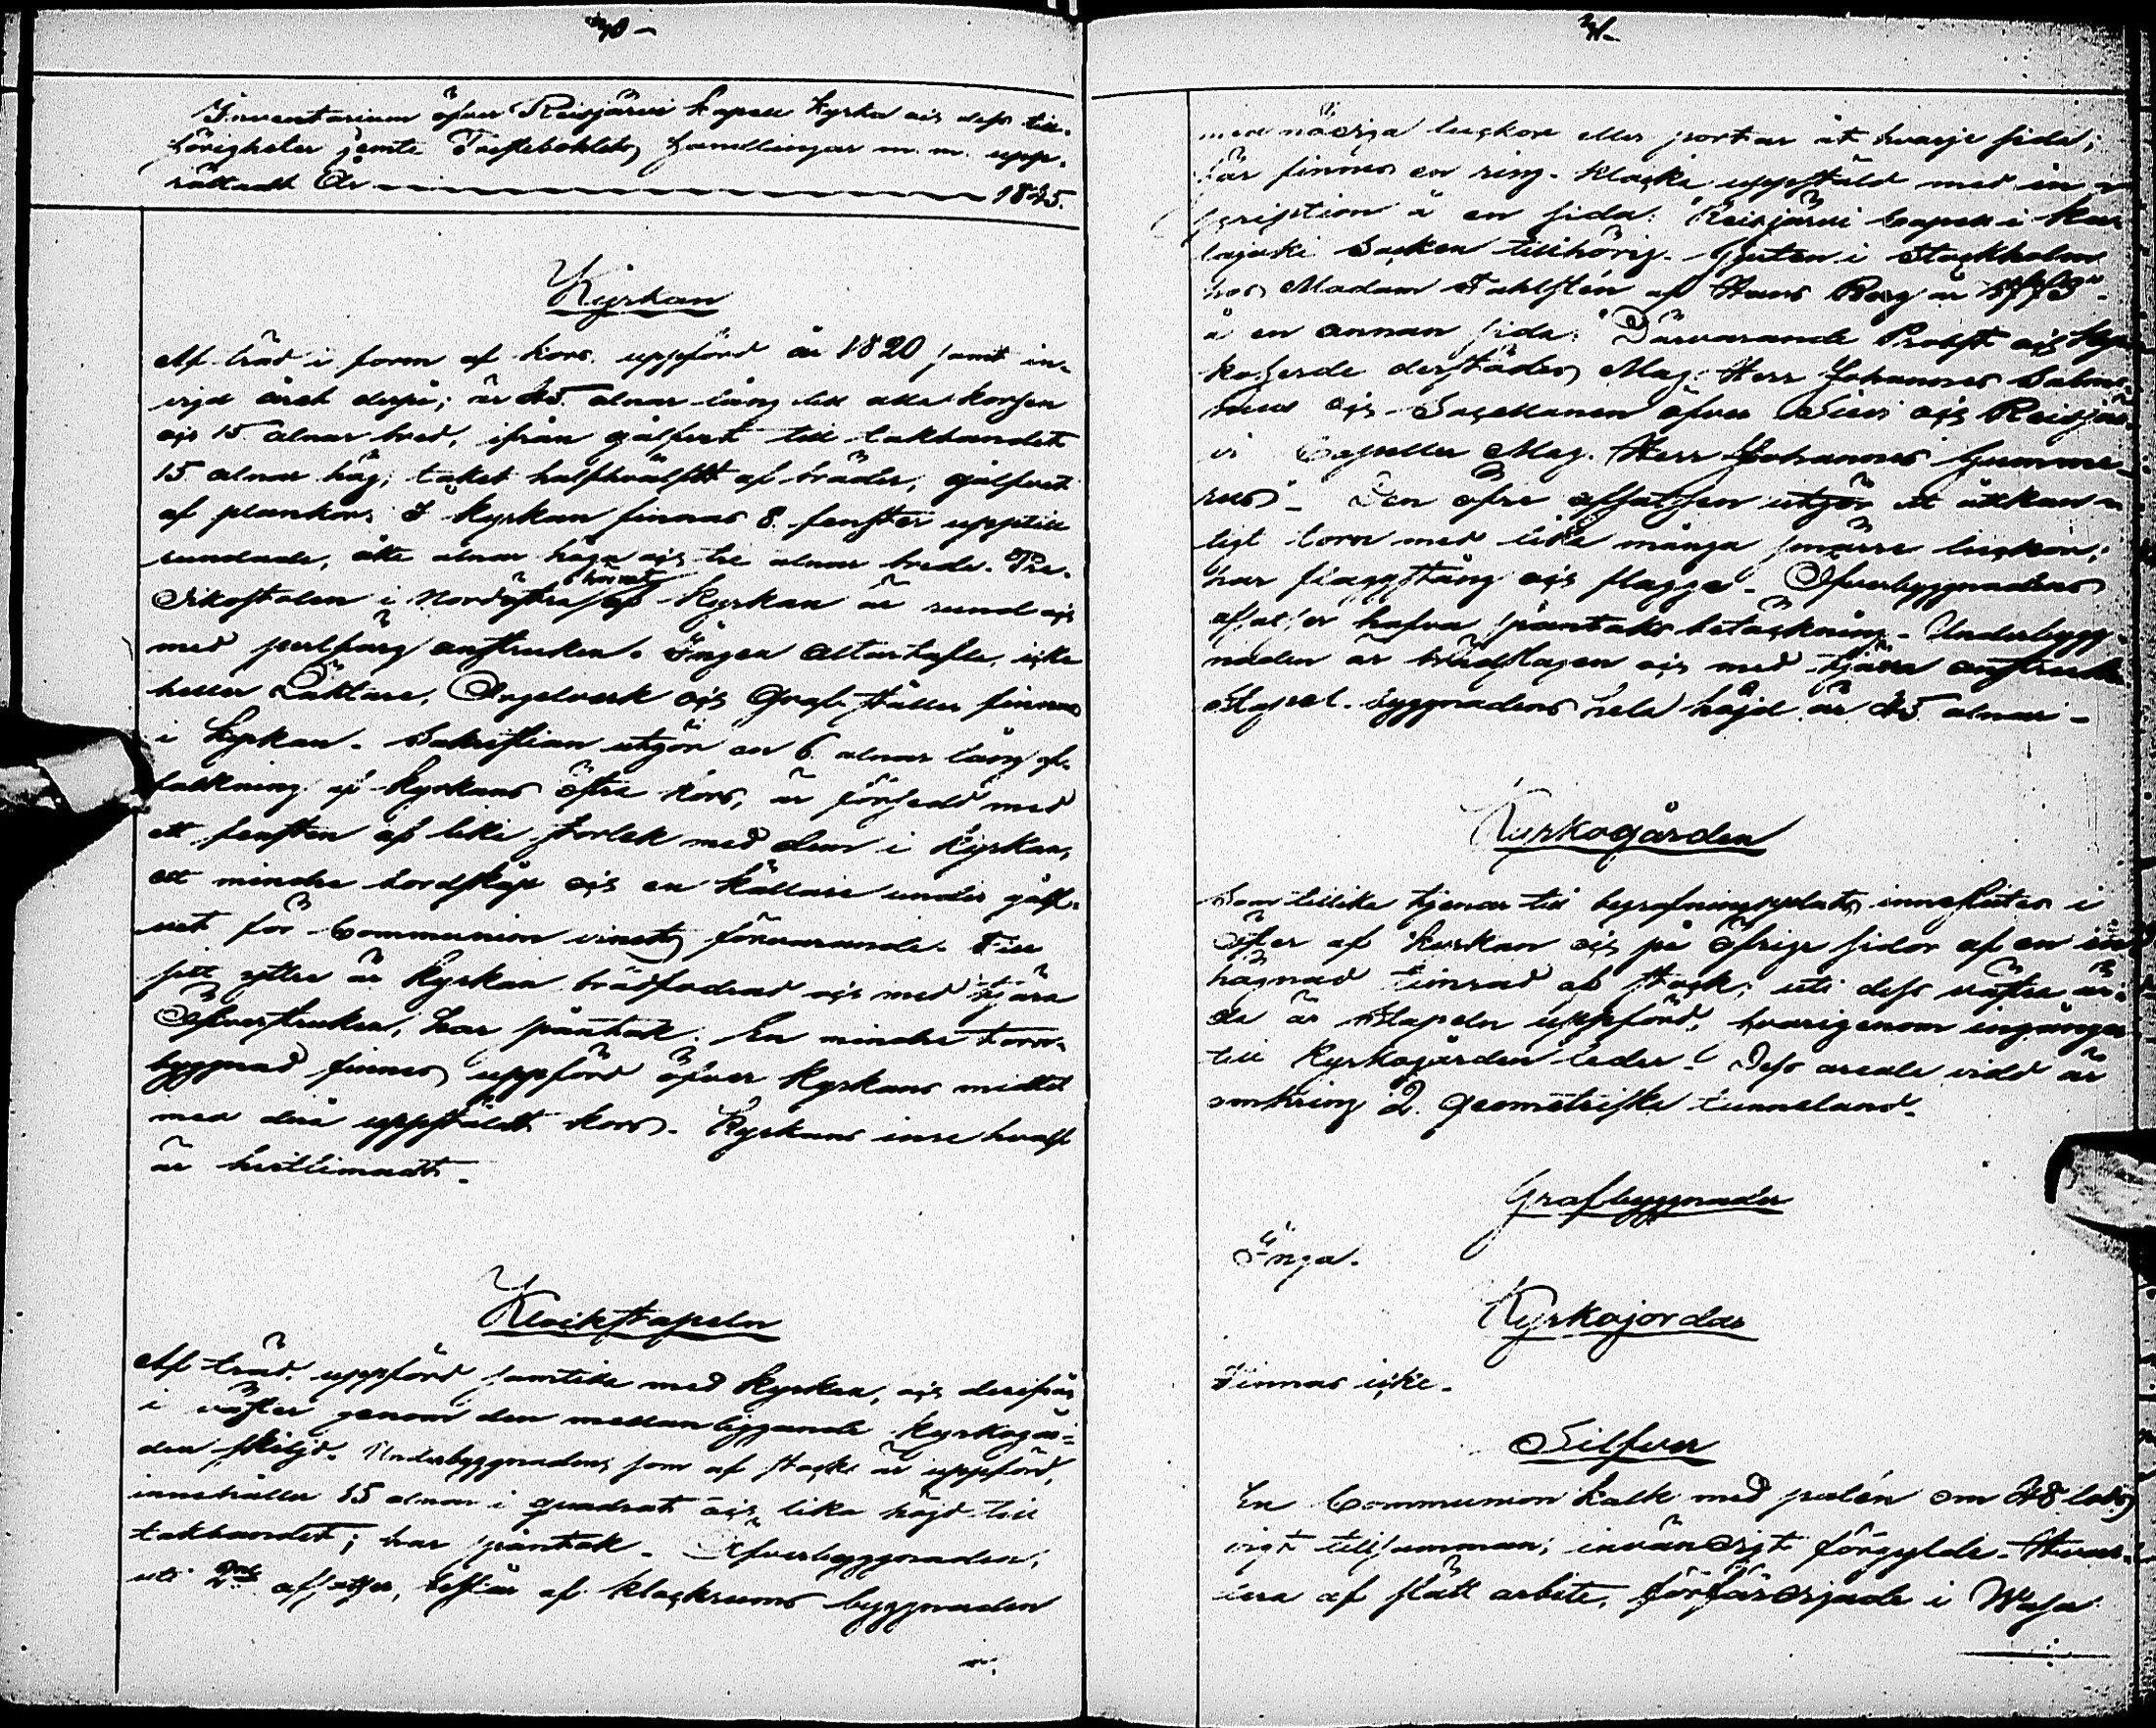 Inventarium öfver Reisjärvi Kapell Kyrka och dess till-
hörigheter jemte Fastebohlets handlingar m. m. upp-
rättadt År 1845.
Kyrkan
Af träd i form af kors uppförd år 1820 samt in-
vigd året derpå; är 45 alnar lång till alla korsen
och 15 alnar bred, ifrån gålfvet till takbandet
15 alnar hög; taket halfhvälfdt af bräder, gålfvet
af plankor; I Kyrkan finnas 8 fenster upptill
rundade, åtta alnar höga och tre alnar breda. Pre-
dikostolen i Nordöstra hörnet af Kyrkan är rund och
med perlfärg anstruken. Ingen Altartafla, icke
heller Läktare, Orgelverk och Graf-ställen finnas
i Kyrkan. Sakristian utgör en 6 alnar lång af-
balkning af Kyrkans östra kors, är försedd med
ett fenster af lika storlek med dem i Kyrkan,
ett mindre bordskåp och en källare under gålf-
vet för Communion vinets förvarande. Till
sitt yttre är Kyrkan brädfodrad och med tjära
Öfverstruken, har påntak. En mindre torn-
byggnad finnes uppförd öfver Kyrkans midt
med derå uppstäldt kors. Kyrkans inre hvalf
är hvitlimmadt.
Klockstapeln
Af träd, uppförd samtida med Kyrkan, och derifrån
i väster genom den mellanliggande Kyrkogår-
den skiljd. Underbyggnaden, som af stock är uppförd,
innehåller 15 alnar i quadrat och lika höjd till
takbandet; har påntak. Öfverbyggnaden,
uti 2ne afsatser, består af klockrums byggnaden
med nödiga luckor eller portar åt hvarje sida;
här finnes en ring-klocka uppstäld med in-
scription å en sida: "Reisjärvi Capell i Kar
lajocki Socken tillhörig. Gjuten i Stockholm
hos Madam Fahlstén af Hans Borg år 1773".
å en annan sida: "Därvarande Probst och Kyr
koherde derstädes Mag: Herr Johannes Salme-
nius och Sacellanen öfver Sievi och Reisjär-
vi Capeller Mag. Herr Johannes Gumme-
rus". Den öfre afsatsen utgör ett åttkan-
tigt torn med lika många smärre luckor;
har flaggstång och flagga. Öfverbyggnadens
afsatser hafva spåntaks betäckning. Underbygg-
naden är brädslagen och med tjära anstruken
Stapel-byggnadens hela höjd är 45 alnar.
Kyrkogården
Som tillika tjenar till begrafningsplats, inneslutes i
Öster af Kyrkan och på öfrige sidor af en in-
hägnad timrad af stock; uti dess västra än-
da är Stapeln uppförd, hvarigenom ingången
till Kyrkogården leder. Dess areala vidd är
omkring 2. geometriska tunneland.
Grafbyggnader
Inga.
Kyrkojordar
Finnas icke.
Silfver
En Communion Kalk med patén om 48 lods
vigt tillsamman; invändigt förgylde. Hvar-
dera af slätt arbete, förfärdigade i Wasa